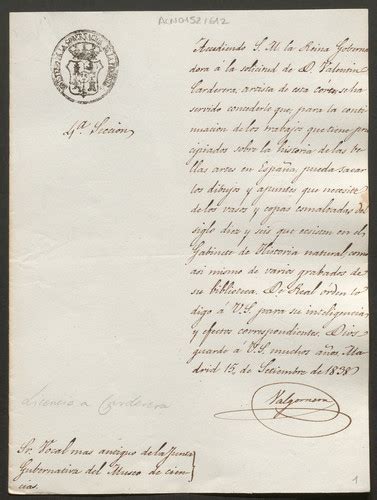 ACN0152/612
4ª Seccion
Accediendo S. M. la Reina Goberna
dora á la solicitud de D. Valentin
Carderera, artista de esta corte, se ha
servido concederle que, para la conti
nuacion de los trabajos que tiene prin
cipiados sobre la historia de las be
llas artes en España, pueda sacar
los dibujos y apuntes que necesite
de los vasos y copas esmaltadas del
siglo diez y seis que ecsisten en el
Gabinete de Historia natural, como
asi mismo de varios grabados de
su biblioteca. De Real órden lo
digo á V.S. para su inteligencia
y efectos correspondientes. Dios
guarde á V.S. muchos años. Ma
drid 15, de Setiembre de 1838.
Valgornera
Licencia a Carderera
Sr. Vocal mas antiguo de la Junta
Gubernativa del Museo de cien
cias.
1